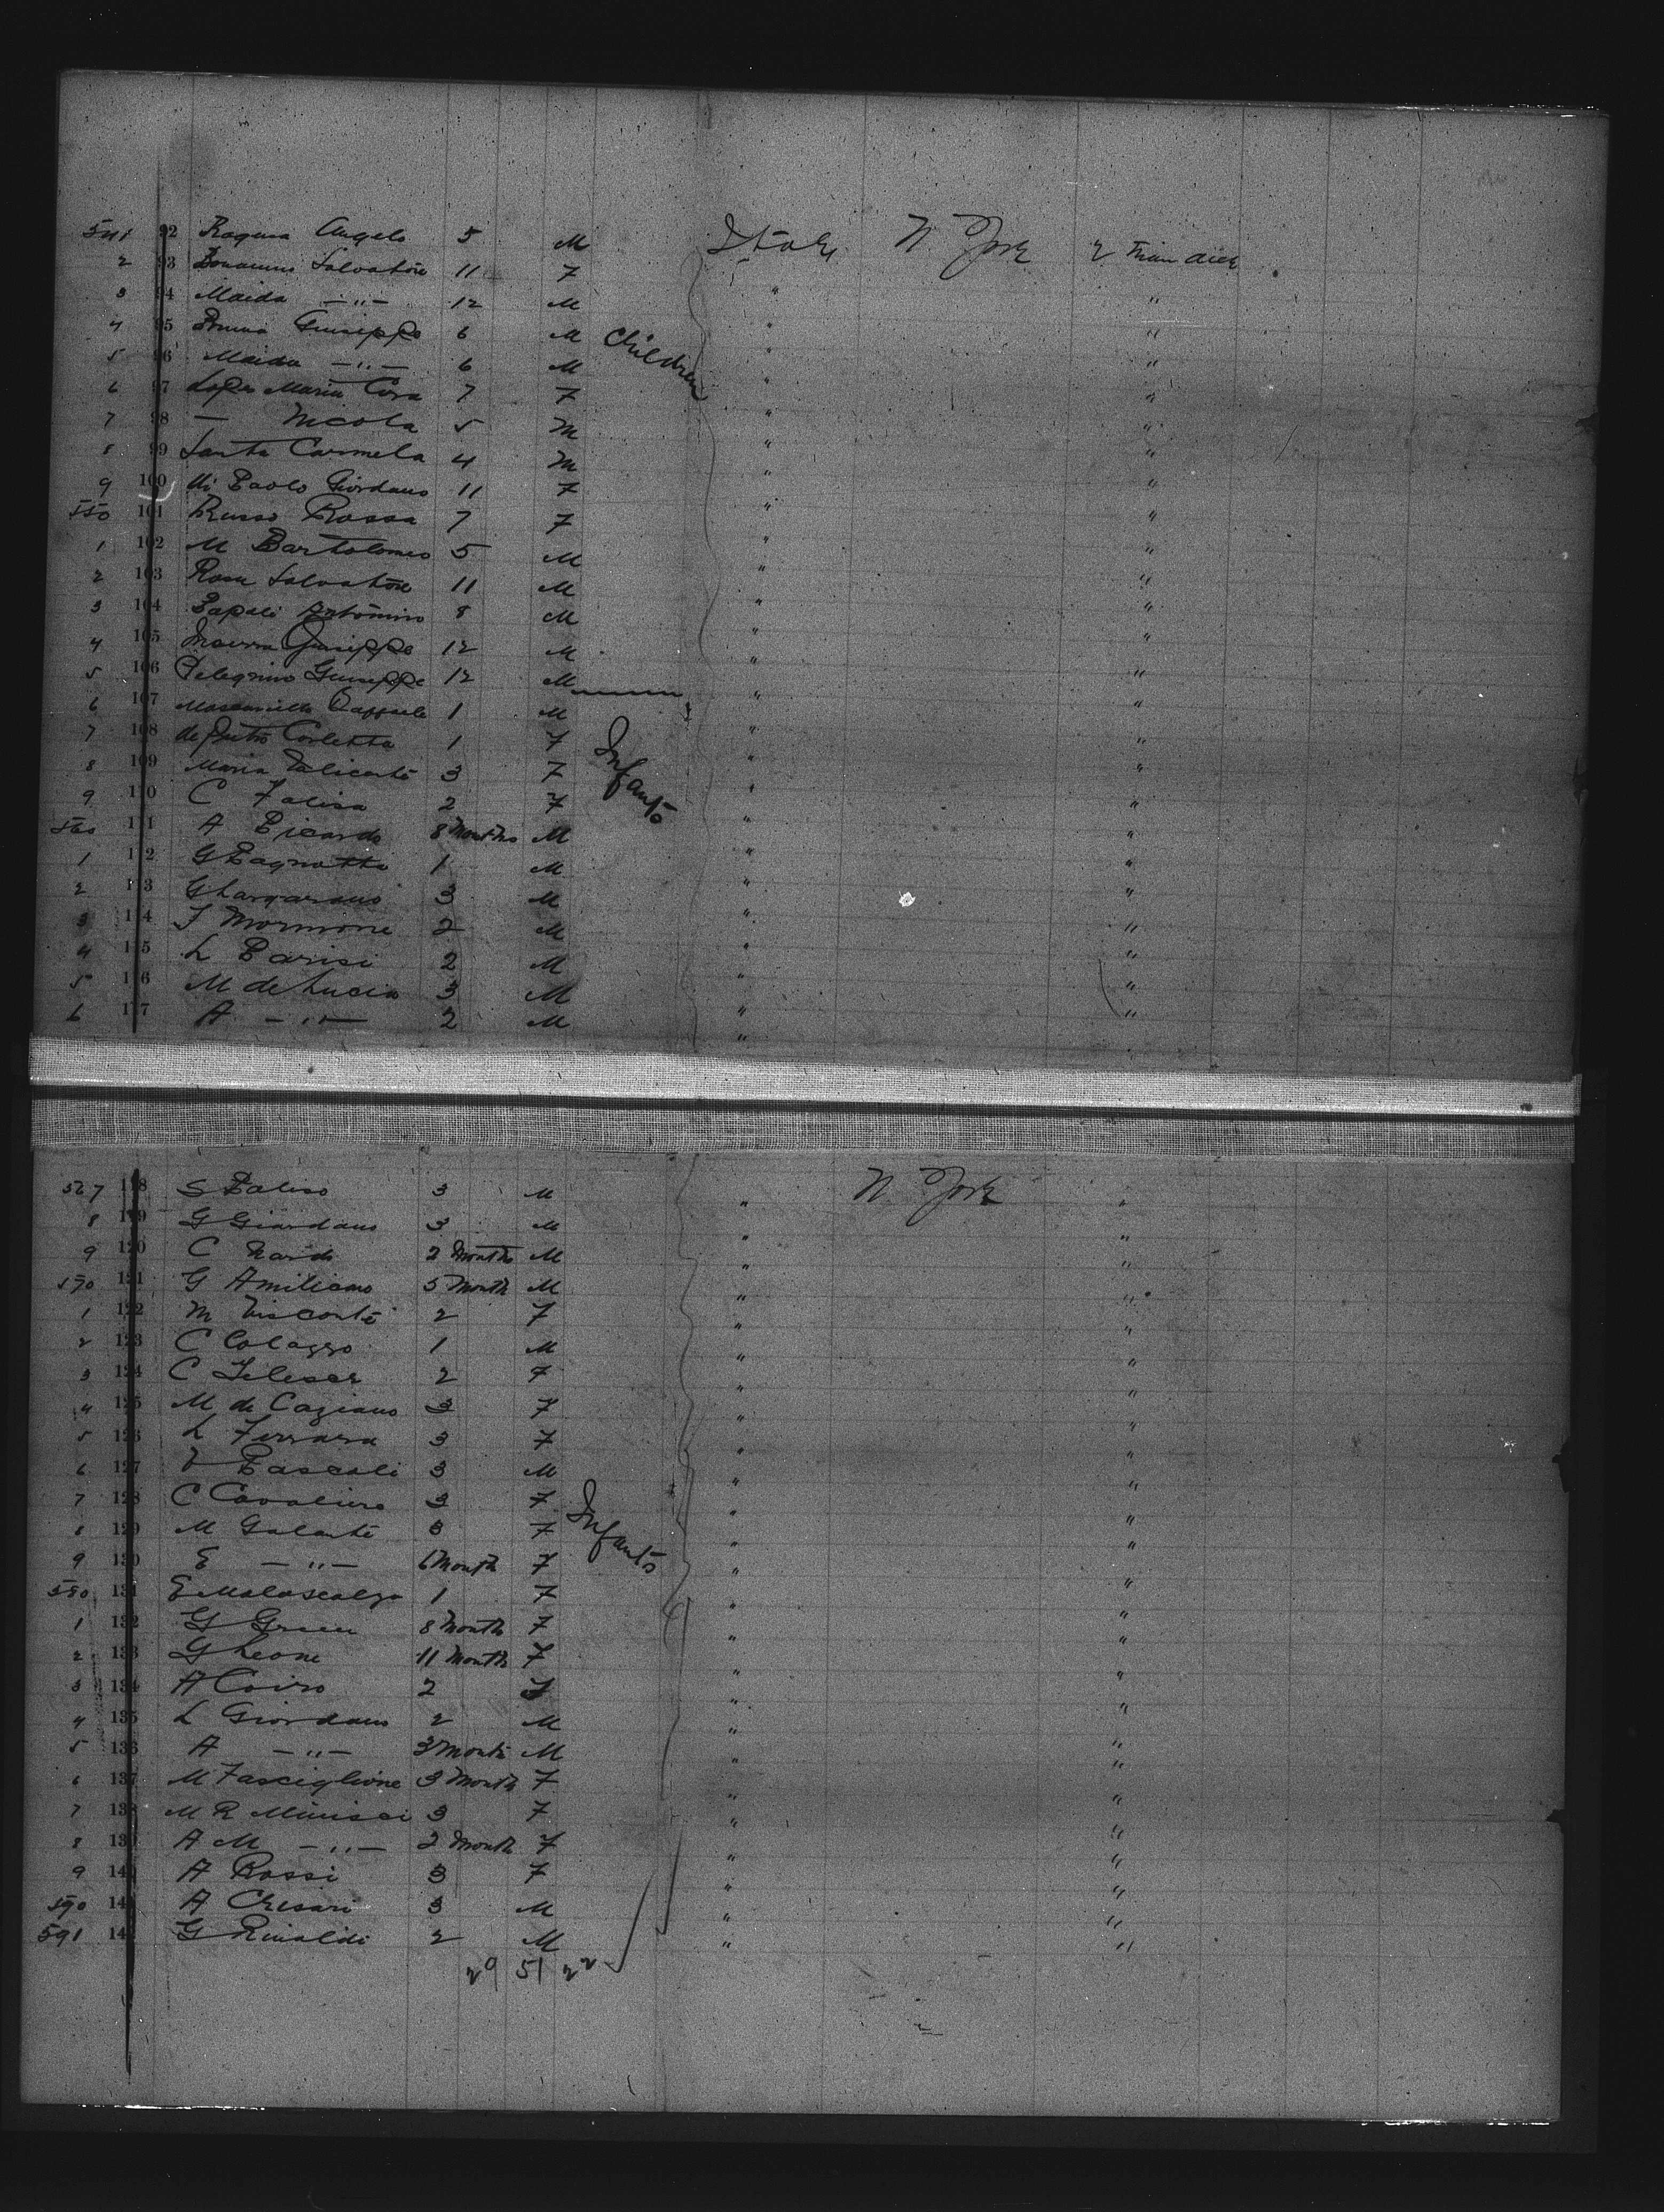 541 92 Angelo 5 M Italy N York
2 93 Salvatore 11 F " "
3 94 Maida —"— 12 M " "
4 95 Giuseppe 6 M Children " "
5 96 Maida —"— 6 M " "
6 97 Maria 7 F " "
7 98 — Nicola 5 M " "
8 99 Santa Carmela 4 M " "
9 100 di Paolo Giordano 11 F " "
550 101 Russo Rossa 7 F " "
1 102 M Bartolomeo 5 M " "
2 103 Rosa Salvatore 11 M " "
3 104 Antonino 8 M " "
4 105 Giuseppe 12 M " "
5 106 Pelegrino Giuseppe 12 M " "
6 107 Raffaele 1 M " "
7 108 1 F Infants " "
8 109 Maria 3 F " "
9 110 C Falisa 2 F " "
560 111 A Picardo 8 Months M " "
1 112 G Pagnotta 1 M " "
2 113 G 3 M " "
3 114 Mormone 2 M " "
4 115 L Parisi 2 M " "
5 116 M de Lucia 3 M " "
6 117 A —"— 2 M "
567 118 S 3 M " N York "
8 119 G Giordano 3 M " "
9 120 C Nardo 2 Months M " "
570 121 G Amiliano 5 Month M " "
1 122 M Visconti 2 F " "
2 123 C Colazzo 1 M " "
3 124 C 2 F " "
4 125 M de Caziano 3 F " "
5 126 L Ferrara 3 F " "
6 127 V Pascali 3 M " "
7 128 C Cavaliero 3 F Infants " "
8 129 M Galante 3 F " "
9 130 E —"— 6 Month F " "
580 131 E Malascalzo 1 F " "
1 132 G Green 8 Month F " "
2 133 G Leone 11 Month F " "
3 134 A Coiro 2 " "
4 135 L Giordano 2 M " "
5 136 A —"— 3 Month M " "
6 137 M Fasciglione 3 Month F " "
7 138 M R Minisci 3 F " "
8 139 A M —"— 2 Month F " "
9 14 A Rossi 3 F " "
590 14 A Chesari 3 M " "
591 14 G Rinaldi 2 M " "
29 51 22